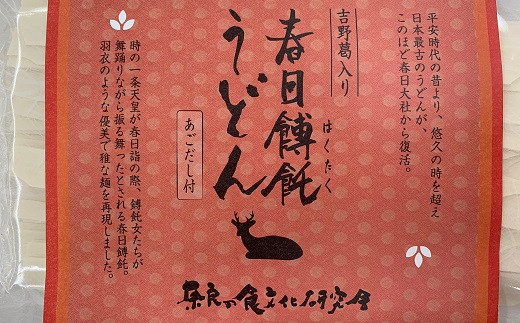 平安時代の昔より、悠久の時を超え
日本最古のうどんが、
このほど春日大社から復活。
吉野葛入り
春日餺飥
はくたく
うどん
あごだし付
時の一条天皇が春日詣の際、餺飥女たちが
舞踊りながら振る舞ったとされる春日餺飥。
羽衣のような優美で雅な麺を再現しました。
奈良の食文化研究会